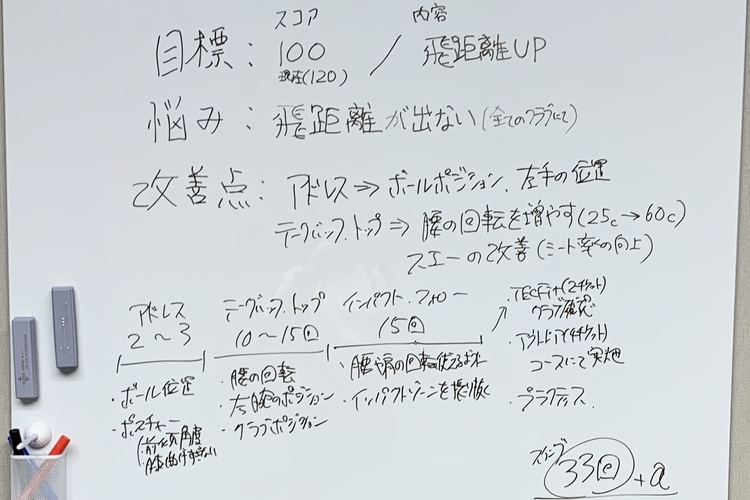 スコア 内容
目標: 100 / 飛距離UP
現在(120)
悩み: 飛距離が出ない(全てのクラブにて)
改善点: アドレス⇒ボールポジション、左手の位置
テークバック、トップ⇒腰の回転を増やす(25c→60c)
スエーの改善(ミート率の向上)
アドレス
2〜3
・ボール位置
・ポスチャー
前傾角度
テークバック、トップ
10〜15回
・腰の回転
・右腕のポジション
・クラブポジション
インパクト、フォロー
15回
・インパクトゾーンを振り抜く
・TECFit(2チケット)
クラブ確認
コースにて実施
・プラクティス
スタンプ
33回+α